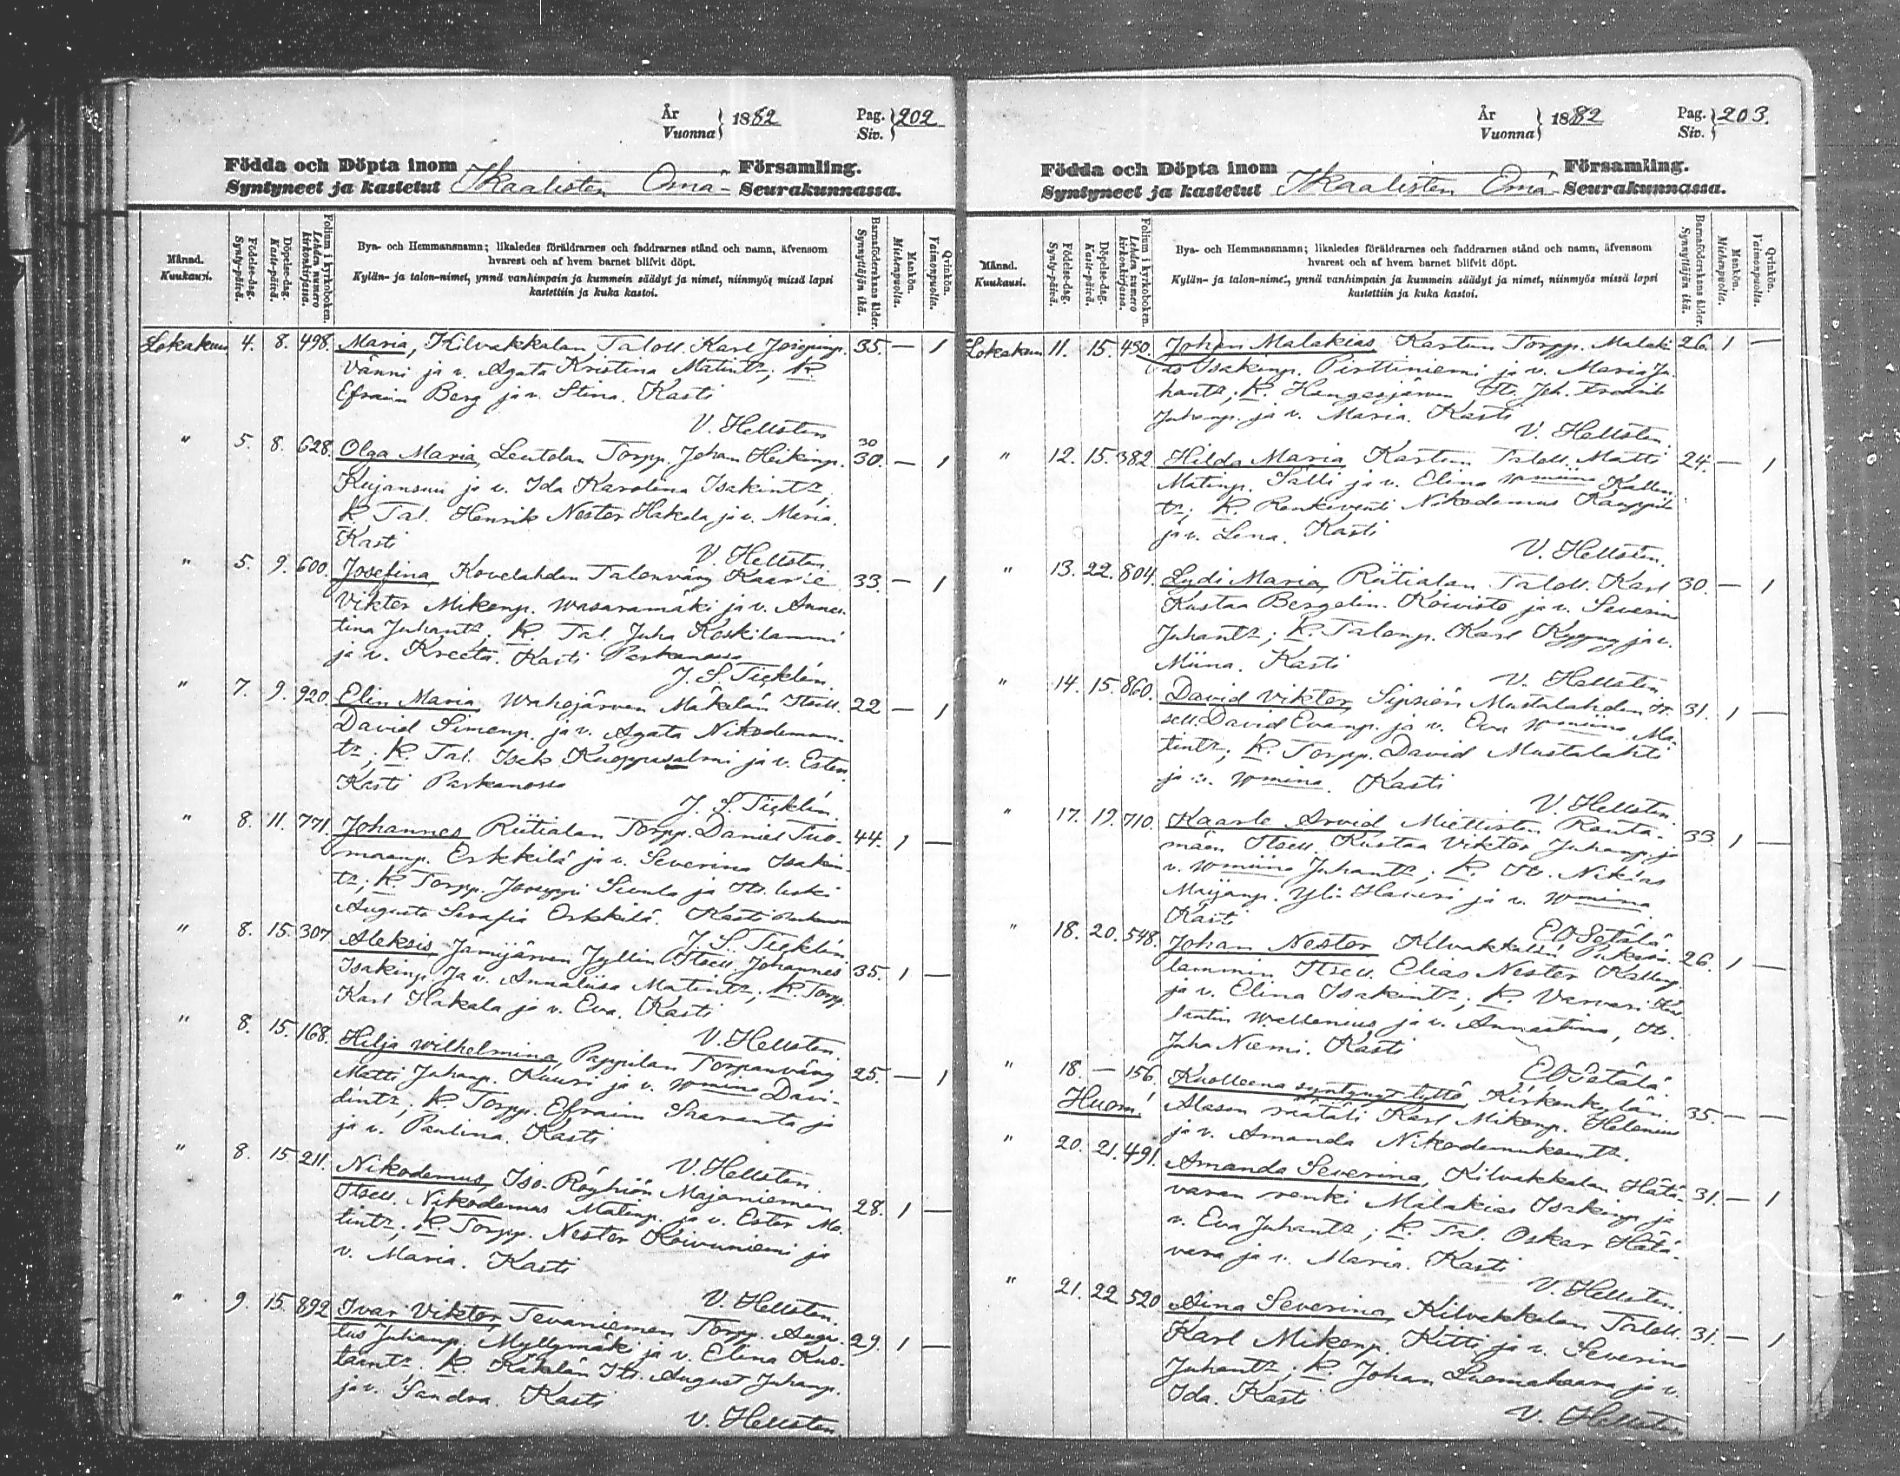 År
Vuonna } 1882
Pag.
Siv. } 202
Födda och Döpta inom
Syntyneet ja kastetut Ikaalisten Omä-
Församling.
Seurakunnassa.
Månad.
Kuukausi.
Födelse-dag.
Synty-päivä.
Döpelse-dag.
Kaste-päivä.
Folium i kyrkoboken.
Lehden numero kirkonkirjassa.
Bya- och Hemmansnamn; likaledes föräldrarnes och faddrarnes stånd och namn, äfvensom
hvarest och af hvem barnet blifvit döpt.
Kylän- ja talon-nimet, ynnä vanhimpain ja kummein säädyt ja nimet, niinmyös missä lapsi
kastettiin ja kuka kastoi.
Barnaföderskans ålder.
Synnyttäjän ikä.
Mankön.
Miehenpuolia.
Qvinkön.
Vaimonpuolia.
Lokakuu 4. 8. 498. Maria, Kilvakkalan Taloll. Karl 35. — 1
Vänni ja v. Agata Kristina Matintr; K.
Efraim Berg ja v. Stina. Kasti
V. Hellsten
" 5. 8. 628. Olga Maria, Leutolan Torpp. Johan Heikinp. 30 30. — 1
Kujansuu ja v. Ida Karolina Isakintr;
K. Tal. Henrik Nestor Hakala ja v. Maria.
Kasti
V. Hellsten.
" 5. 9. 600. Josefina, Kovelahden Talonväv Kaarle 33 — 1
Viktor Mikonp. Wasaramäki ja v. Annas-
tina Juhantr; K. Tal. Juha Koskilammi
ja v. Kreeta. Kasti Parkanossa
J. S. Ticklén.
" 7. 9. 920. Elin Maria, Wahojärven Mäkelän Itsell. 22 — 1
David Simonp. ja v. Agata Nikodemun-
tr; K. Tal. Isak Kuoppasalmi ja v. Ester.
Kasti Parkanossa
J. S. Ticklén.
" 8. 11. 771. Johannes Riitialan Torpp. Daniel Tuo- 44. 1 —
maanp. Erkkilä ja v. Severina Isakin-
tr; K. Torpp. Joseppi Siuula ja Its. leski
Augusta Serafia Erkkilä. Kasti Parkanossa
J. S. Ticklén.
" 8. 15. 307 Aleksis Jämijärven Jyllin Itsell. Johannes 35. 1 —
Isakinp. ja v. Annaliisa Matintr; K. Torp.
Karl Hakala ja v. Eva. Kasti
V. Hellsten.
" 8. 15. 168. Hilja Wilhelmina, Pappilan Torpanväv 25. — 1
Matti Juhanp. Kuusi ja v. Wmina Davi-
dintr; K. Torpp. Efraim Saaranta ja
ja v. Paulina. Kasti
V. Hellsten.
" 8. 15 211. Nikodemus, Iso-Röyhiön Majaniemen 28. 1 —
Itsell. Nikodemus Matinp. ja v. Ester Ma-
tintr; K. Torpp. Nestor Koivuniemi ja
v. Maria. Kasti
V. Hellsten.
" 9. 15. 892 Ivar Viktor, Tevaniemen Torpp. Augus- 29. 1 —
tus Juhanp. Myllymäki ja v. Elina Kus-
taantr. K. Käkelän Its. August Juhanp.
ja v. Sandra. Kasti
V. Hellsten
År
Vuonna } 1882
Pag.
Siv. } 203.
Födda och Döpta inom
Syntyneet ja kastetut Ikaalisten Omä-
Församling.
Seurakunnassa.
Månad.
Kuukausi.
Födelse-dag.
Synty-päivä.
Döpelse-dag.
Kaste-päivä.
Folium i kyrkoboken.
Lehden numero kirkonkirjassa.
Bya- och Hemmansnamn; likaledes föräldrarnes och faddrarnes stånd och namn, äfvensom
hvarest och af hvem barnet blifvit döpt.
Kylän- ja talon-nimet, ynnä vanhimpain ja kummein säädyt ja nimet, niinmyös missä lapsi
kastettiin ja kuka kastoi.
Barnaföderskans ålder.
Synnyttäjän ikä.
Mankön.
Miehenpuolia.
Qvinkön.
Vaimonpuolia.
Lokakuu 11. 15. 450. Johan Malakias, Kartun Torpp. Malaki- 26. 1 —
as Isakinp. Pirttiniemi ja v. Maria Ju-
hantr; K. Hangasjärven Its. Joh.
Juhanp. ja v. Maria. Kasti
V. Hellsten.
" 12. 15. 382. Hilda Maria Kartun Taloll. Matti 24. — 1
Matinp. Sälli ja v. Elina Wmiina Kallen-
tr; K. Nikodemus Kauppila
ja v. Lena. Kasti
V. Hellsten.
" 13. 22. 804. Lydi Maria, Riitialan Taloll. Karl 30. — 1
Kustaa Bergelin. Koivisto ja v. Severina
Juhantr; K. Talonp. Karl Kyyny ja v.
Miina. Kasti
V. Hellsten.
" 14. 15. 860. David Viktor, Sipsiön Mustalahden It- 31. 1 —
sell. David Evanp. ja v. Eva Wmiina Ma-
tintr; K. Torpp. David Mustalahti
ja v. Wmina. Kasti
V. Hellsten.
" 17. 19. 710. Kaarle Arvid Miettisten Rauta- 33. 1 —
mäen Itsell. Kustaa Viktor Juhanp. ja
v. Wmiina Juhantr; K. Its. Nikias
Maijanp. Yli-Hauri ja v. Wmina.
Kasti
E O Setälä.
" 18. 20. 548. Johan Nestor Kilvakkalan 26. 1 —
lammin Itsell. Elias Nestor Kallenp.
ja v. Elina Isakintr; K. Varvari
Wallenius ja v. Annastina, Its.
Juha Niemi. Kasti
E O Setälä.
" 18. — 156. Kuolleena syntynyt tyttö, Kirkonkylän 35. — —
Huom! Alasen räätäli Karl Mikonp. Helenius
ja v. Amanda Nikodemuksentr.
" 20. 21. 491. Amanda Severina, Kilvakkalan Hätä- 31. — 1
varan renki Malakias Isakinp. ja
v. Eva Juhantr; K. Tal. Oskar Hätä-
vara ja v. Maria. Kasti
V. Hellsten.
" 21. 22 520 Aina Severina, Kilvakkalan Taloll. 31. — 1
Karl Mikonp. Kitti ja v. Severina
Juhantr; K. Johan Luomahaara ja v.
Ida. Kasti
V. Hellsten